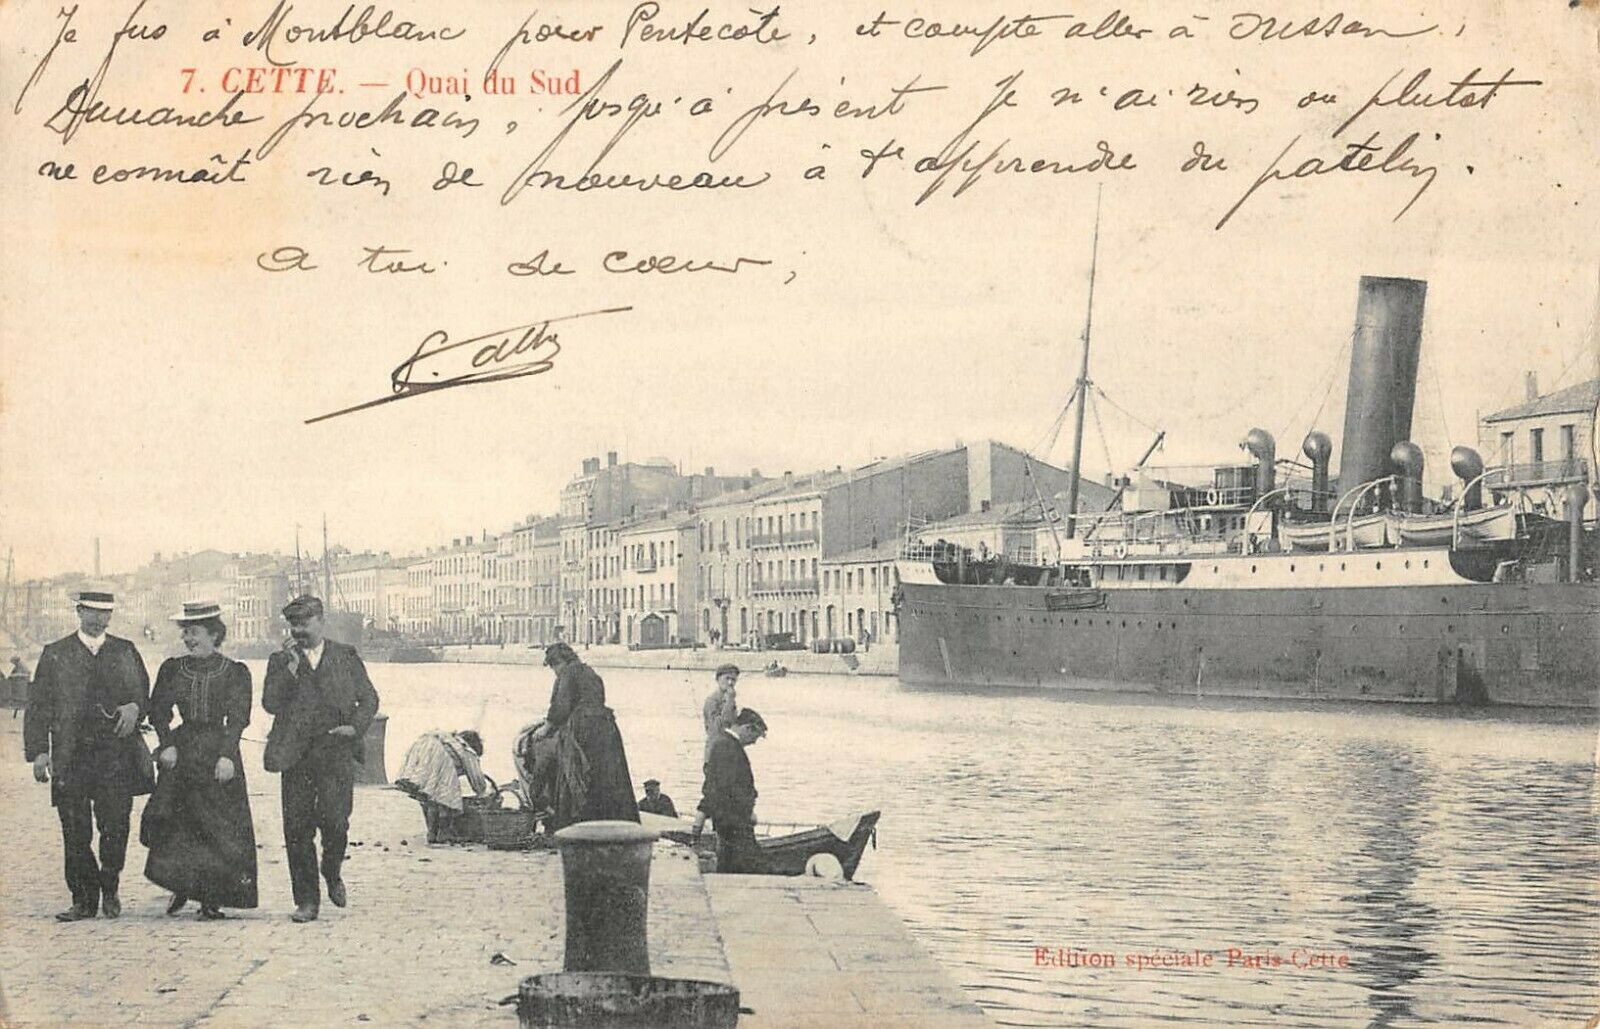 Je fus à Montblanc pour Pentecôte, et compte aller à
7. CETTE. — Quai du Sud
Dimanche prochain, jusqu'à présent je n'ai rien ou plutot
ne connaît rien de nouveau à t'apprendre du patelin.
A toi de coeur,
Edition spéciale Paris-Cette